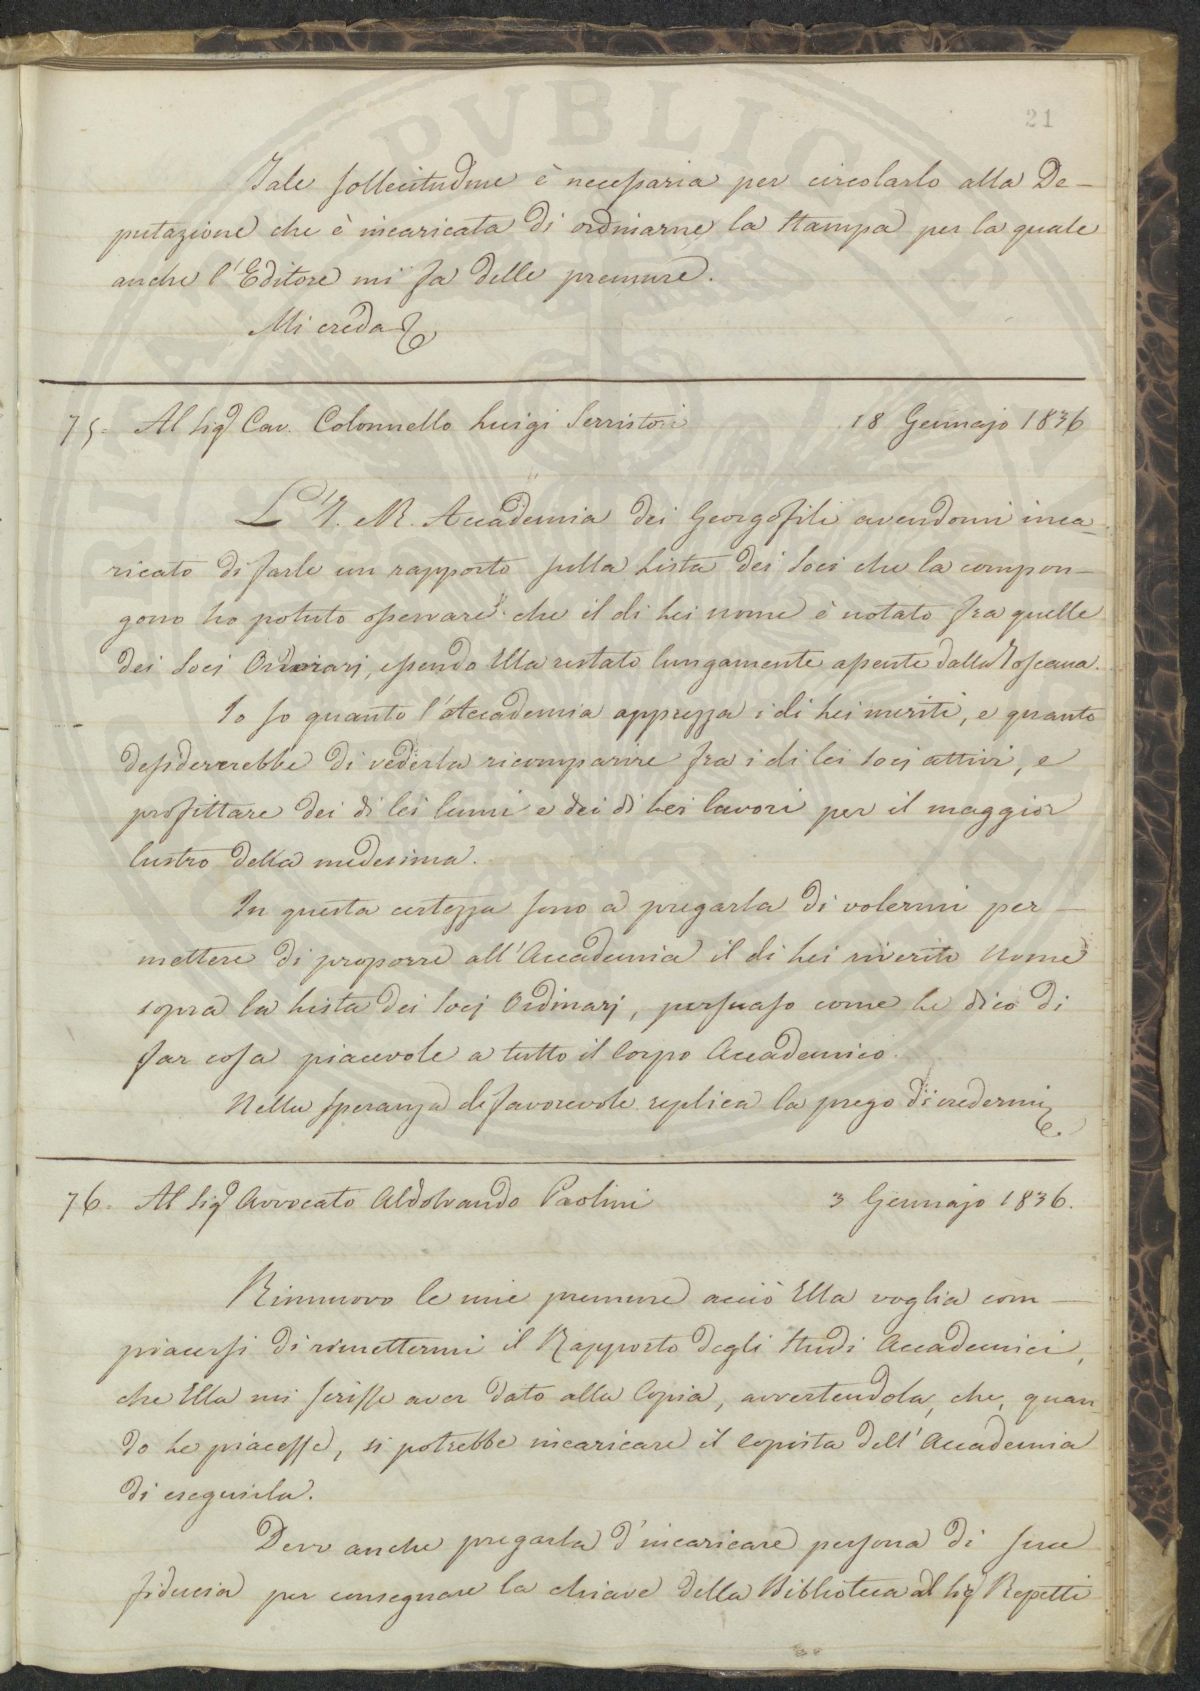 21
Tale sollecitudine è necessaria per circolarlo alla De-
putazione che è incaricata di ordinarne la Stampa per la quale
anche l'Editore mi fa delle premure.
Mi creda
75. Al Sig.r Cav. Colonnello Luigi Serristori 18 Gennajo 1836
L'I. e R. Accademia dei Georgofili avendomi inca-
ricato di farle un rapporto sulla Lista dei Soci che la compon-
gono ho potuto osservare che il di Lei nome è notato fra quelle
dei Socj Ordinarj, essendo Ella restato lungamente assente dalla Toscana.
Io so quanto l'Accademia apprezza i di Lei meriti, e quanto
desidererebbe di vederla ricomparire fra i di lei Socj attivi, e
profittare dei di lei lumi e dei di Lei lavori per il maggior
lustro della medesima.
In questa certezza sono a pregarla di volermi per-
mettere di proporre all'Accademia il di Lei riverito Nome
sopra la Lista dei Socj Ordinarj, persuaso come Le dico di
far cosa piacevole a tutto il Corpo Accademico.
Nella speranza di favorevole replica la prego di credermi
76. Al Sig.r Avvocato Aldobrando Paolini 3 Gennajo 1836.
Rinnuovo le mie premure acciò Ella voglia com-
piacersi di rimettermi il Rapporto degli Studi Accademici,
che Ella mi scrisse aver dato alla Copia, avvertendola, che, quan-
do Le piacesse, si potrebbe incaricare il Copista dell'Accademia
di eseguirla.
Devo anche pregarla d'incaricare persona di sua
fiducia per consegnare la chiave della Biblioteca al Sig.r Repetti